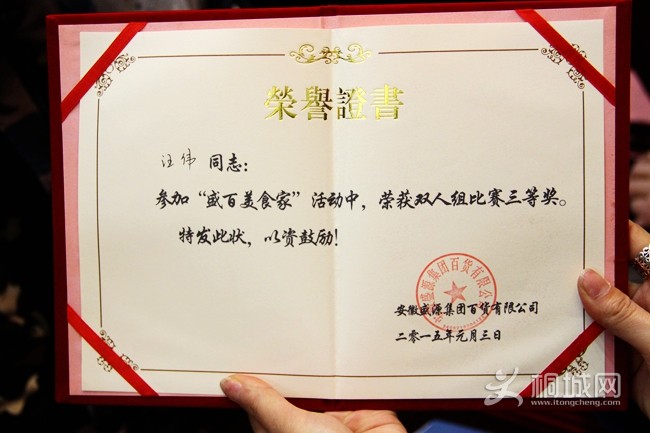 榮譽證書
汪伟 同志：
参加“盛百美食家”活动中，荣获双人组比赛三等奖。
特发此状，以资鼓励！
安徽盛源集团百货有限公司
安徽盛源集团百货有限公司
二零一五年元月三日
桐城网
www.itongcheng.com